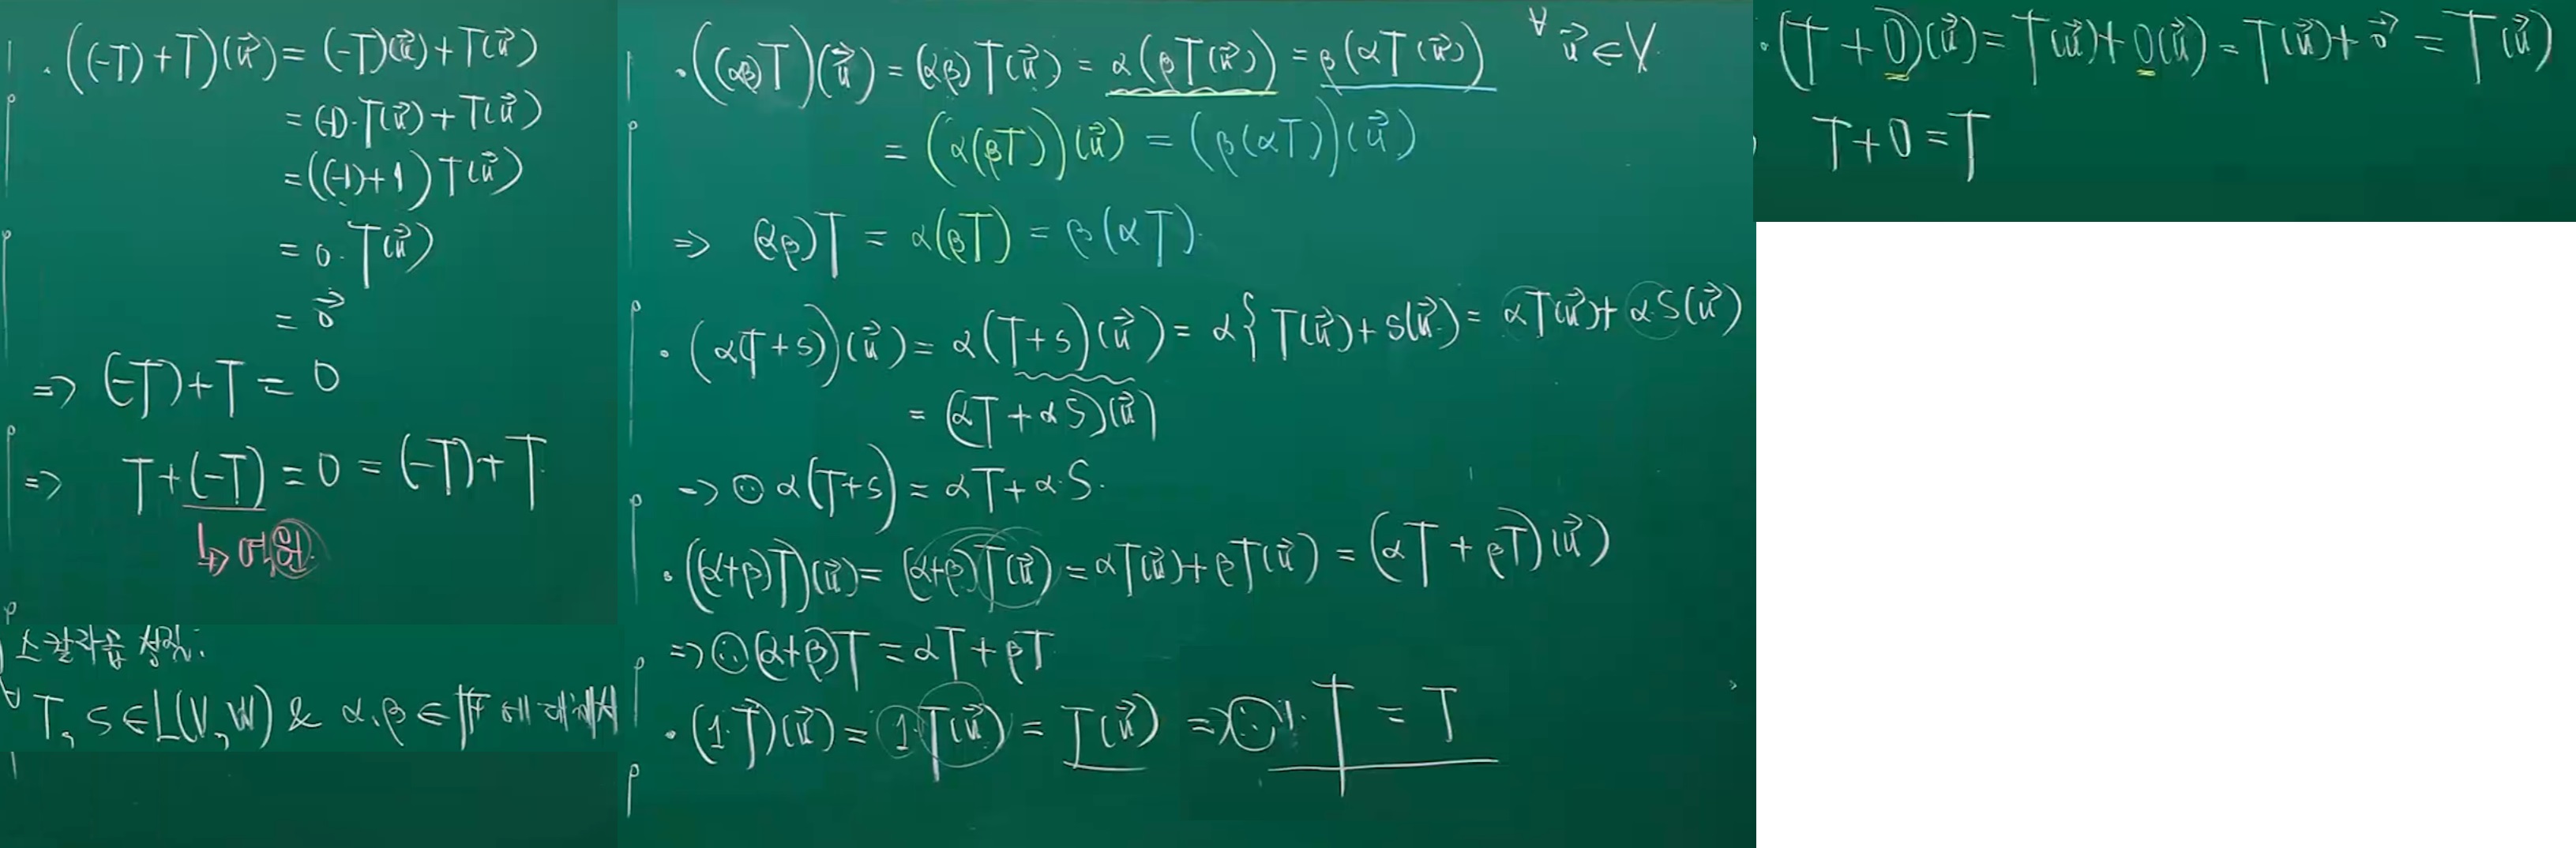 · ((-T)+T)(u⃗) = (-T)(u⃗)+T(u⃗)
= (-1)·T(u⃗)+T(u⃗)
= ((-1)+1)T(u⃗)
= 0·T(u⃗)
= 0⃗
=> (-T)+T = 0
=> T+(-T) = 0 = (-T)+T
↳ 역원.
스칼라곱 성질:
∀ T, S ∈ L(V, W) & α, β ∈ 𝔽 에 대해서
· ((αβ)T)(u⃗) = (αβ)T(u⃗) = α(βT(u⃗)) = β(αT(u⃗)) ∀ u⃗ ∈ V.
= (α(βT))(u⃗) = (β(αT))(u⃗)
=> (αβ)T = α(βT) = β(αT).
· (α(T+S))(u⃗) = α(T+S)(u⃗) = α{T(u⃗)+S(u⃗) = αT(u⃗)+α·S(u⃗)
= (αT+αS)(u⃗)
=> ∴ α(T+S) = αT+α·S.
· ((α+β)T)(u⃗) = (α+β)T(u⃗) = αT(u⃗)+βT(u⃗) = (αT+βT)(u⃗)
=> ∴ (α+β)T = αT+βT
· (1·T)(u⃗) = 1·T(u⃗) = T(u⃗) => ∴ 1·T = T
· (T+0)(u⃗) = T(u⃗)+0(u⃗) = T(u⃗)+0⃗ = T(u⃗)
T+0 = T